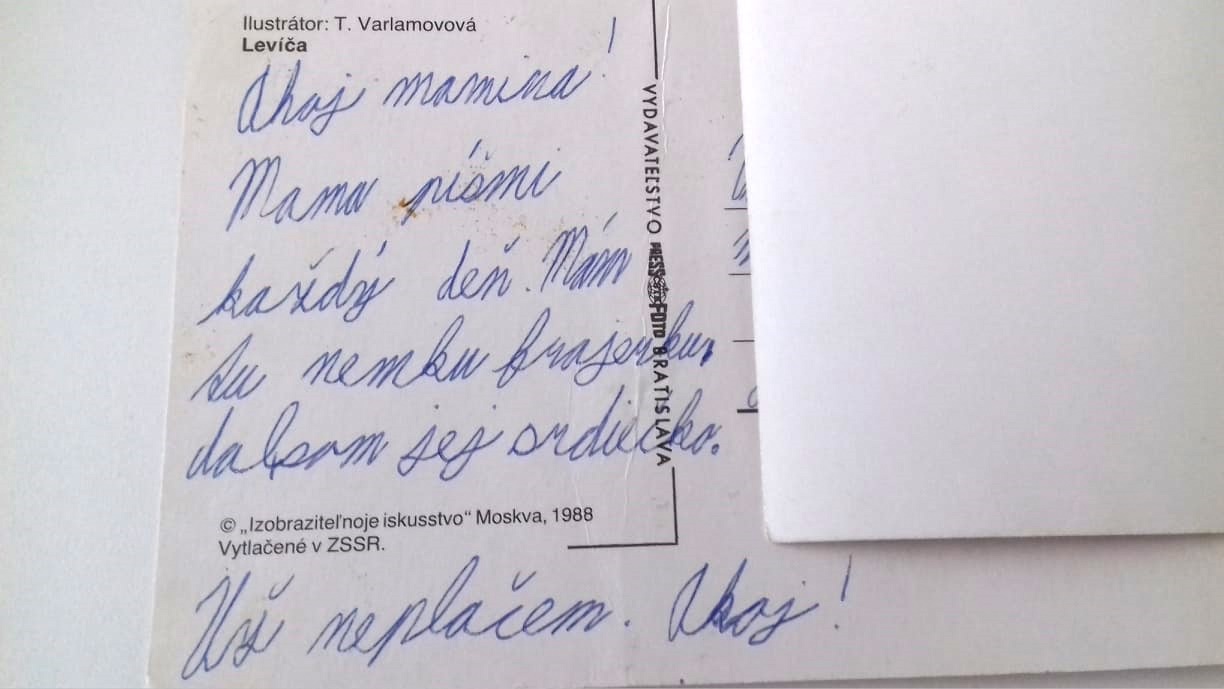 Ilustrátor: T. Varlamovová
Levíča
Ahoj mamina!
Mama píšmi
každý deň. Mám
tu nemku frajerku.
dalsom jej srdiečko.
© „Izobraziteľnoje iskusstvo“ Moskva, 1988
Vytlačené v ZSSR.
Už neplačem. Ahoj!
VYDAVATEĽSTVO PRESSFOTO BRATISLAVA